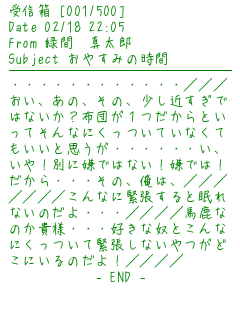 受信箱 [001/500]
Date 02/18 22:05
From 緑間　真太郎
Subject おやすみの時間
・・・・・・・・・・・・///
おい、あの、その、少し近すぎで
はないか？布団が１つだからとい
ってそんなにくっついていなくて
もいいと思うが・・・・・・い、
いや！別に嫌ではない！嫌では！
だから・・・その、俺は、///
////こんなに緊張すると眠れ
ないのだよ・・・////馬鹿な
のか貴様・・・好きな奴とこんな
にくっついて緊張しないやつがど
こにいるのだよ！////
- END -